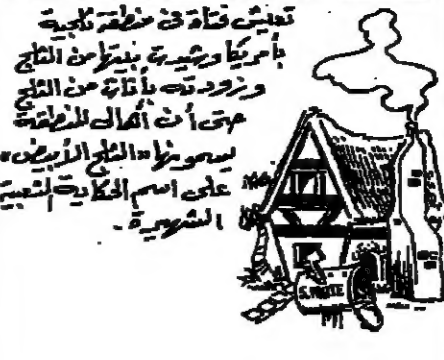 تعيش فتاة في منطقة ثلجية
بأمريكا وشيدت بيتها من الثلج
وزودته بأثاث من الثلج
حتى أن أهالى المنطقة
يسمونها «الثلج الأبيض»
على اسم الحكاية الشعبية
الشهيرة.
S. WHITE